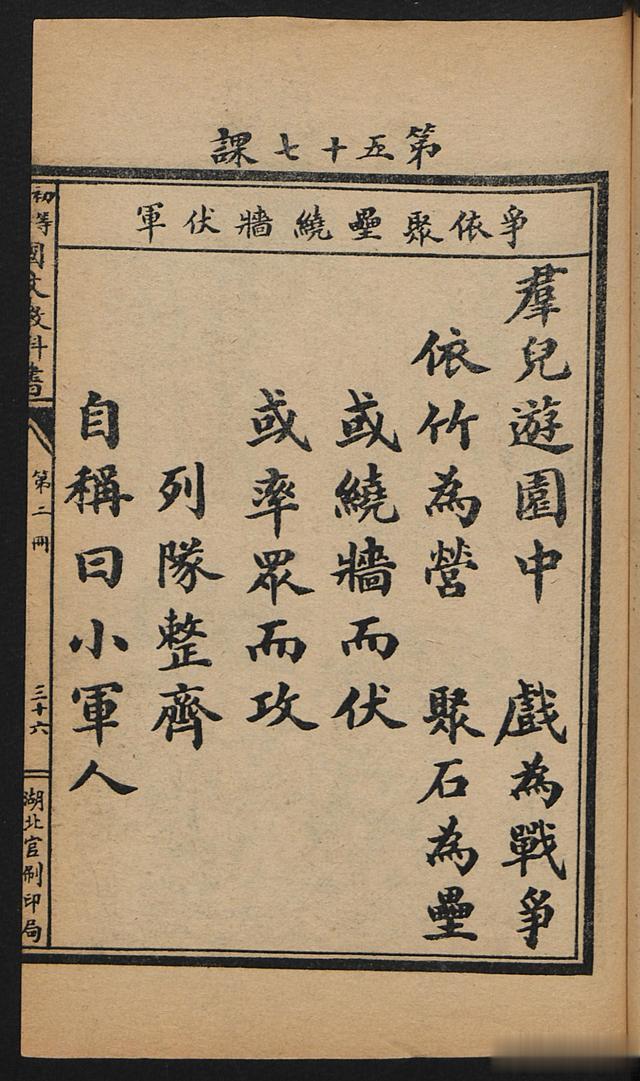 第五十七課
爭依聚壘繞牆伏軍
羣兒遊園中　戲為戰爭
依竹為營　聚石為壘
或繞牆而伏
或率眾而攻
列隊整齊
自稱曰小軍人
初等國文教科書
第二冊
三十六
湖北官刷印局